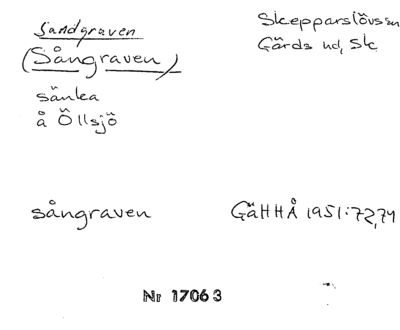 Sandgraven
Skepparslövs sn
(Sångraven)
Gärds hd, Sk
sänka
å Öllsjö
sångraven
GäHHÅ 1951:72,74
Nr 17063